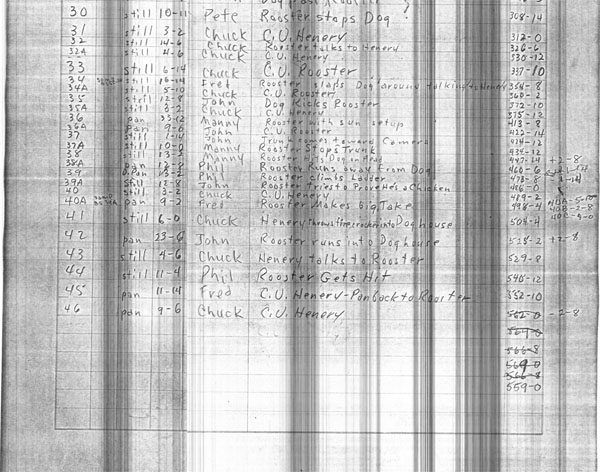 30 still 10-11 Pete Rooster stops Dog ? 308-14
31 still 3-2 Chuck C.U. Henery 312-0
32 still 14-6 Chuck Rooster talks to Henery 326-6
32A still 4-6 Chuck C.U. Henery 330-12
33 still 6-14 Chuck C.U. Rooster 337-10
34 Fred Rooster slaps Dog around talking to Henery 354-8
34A still 5-10 Chuck C.U. Rooster
35 still 12-8 John Dog Kicks Rooster 372-10
35A still 3-2 Chuck C.U. Henery 375-12
36 pan Manny Rooster with sun setup 413-8
36A pan 9-6 John C.U. Rooster 422-14
37 still John Trunk comes toward Camera 424-12
37A still 10-0 Manny Rooster Stops Trunk 434-12
38 still Manny Rooster Hits Dog on Head 447-14 +2-8
38A pan 12-8 Phil Rooster Runs away from Dog 460-6
39 Phil Rooster climbs Ladder 473-8
39A still 12-8 John Rooster tries to Prove He's a Chicken 486-0
40 still 3-2 Chuck C.U. Henery 489-2
40A pan 9-2 Fred Rooster Makes big Take 498-4
41 still 6-0 Chuck Henery throws firecracker into Doghouse 504-4
42 pan 23-6 John Rooster runs into Doghouse 528-2 +2-8
43 still 4-6 Chuck Henery talks to Rooster 529-8
44 still 11-4 Phil Rooster Gets Hit 540-12
45 pan 11-14 Fred C.U. Henery-Pan Back to Rooster 552-10
46 pan 9-6 Chuck C.U. Henery 562-0 -2-8
564-0
566-8
559-0